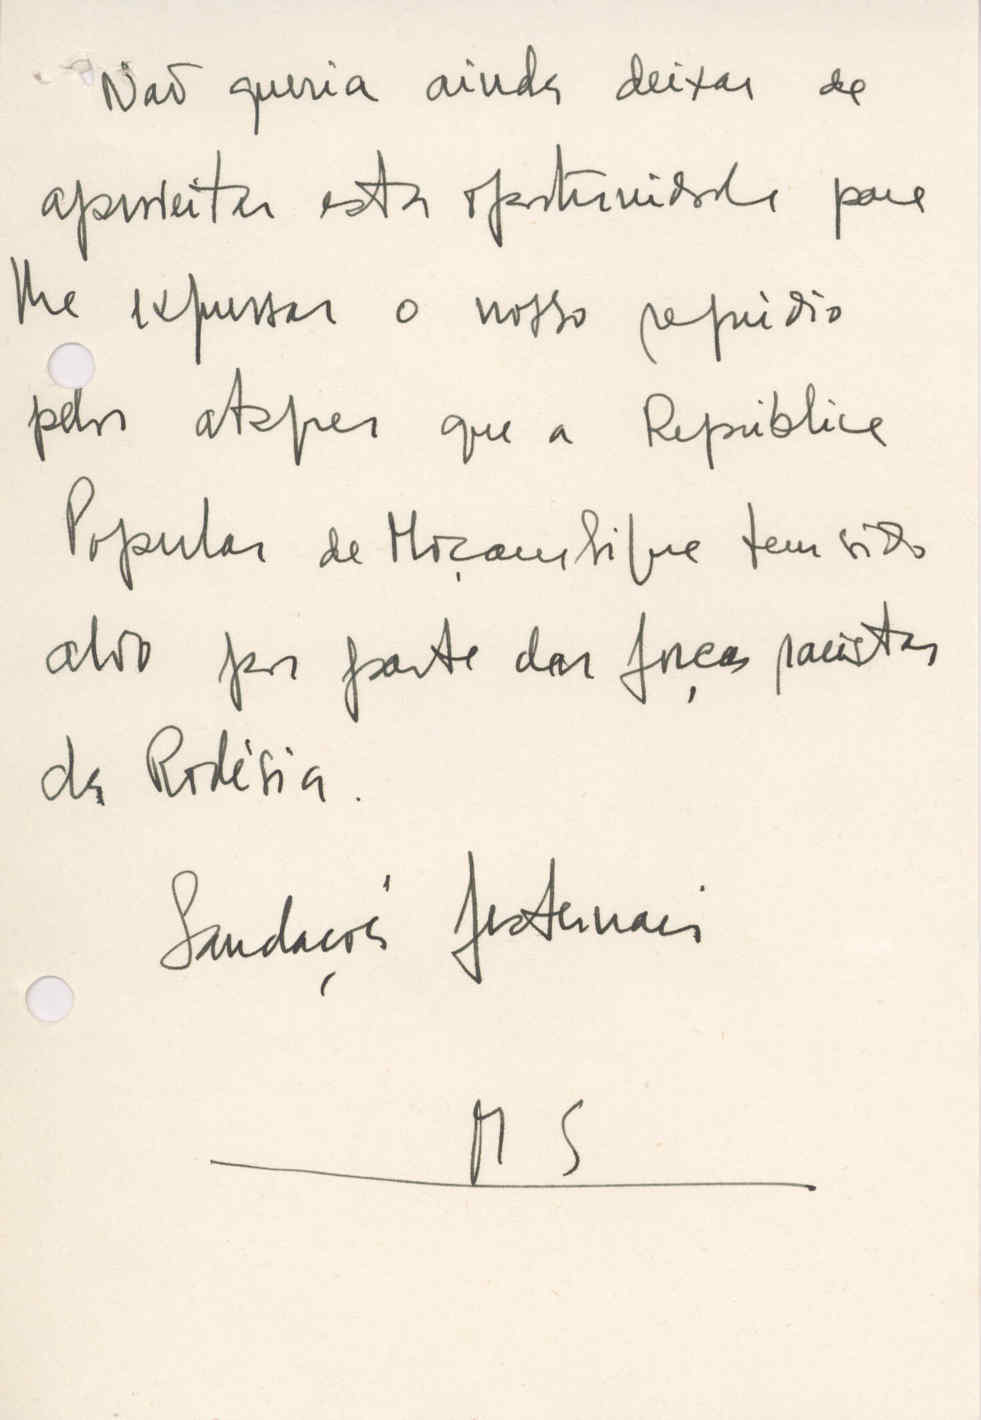 Não queria ainda deixar de
aproveitar esta oportunidade para
lhe expressar o nosso repúdio
pelos ataques que a República
Popular de Moçambique tem sido
alvo por parte das forças racistas
da Rodésia.
Saudações fraternais
M S